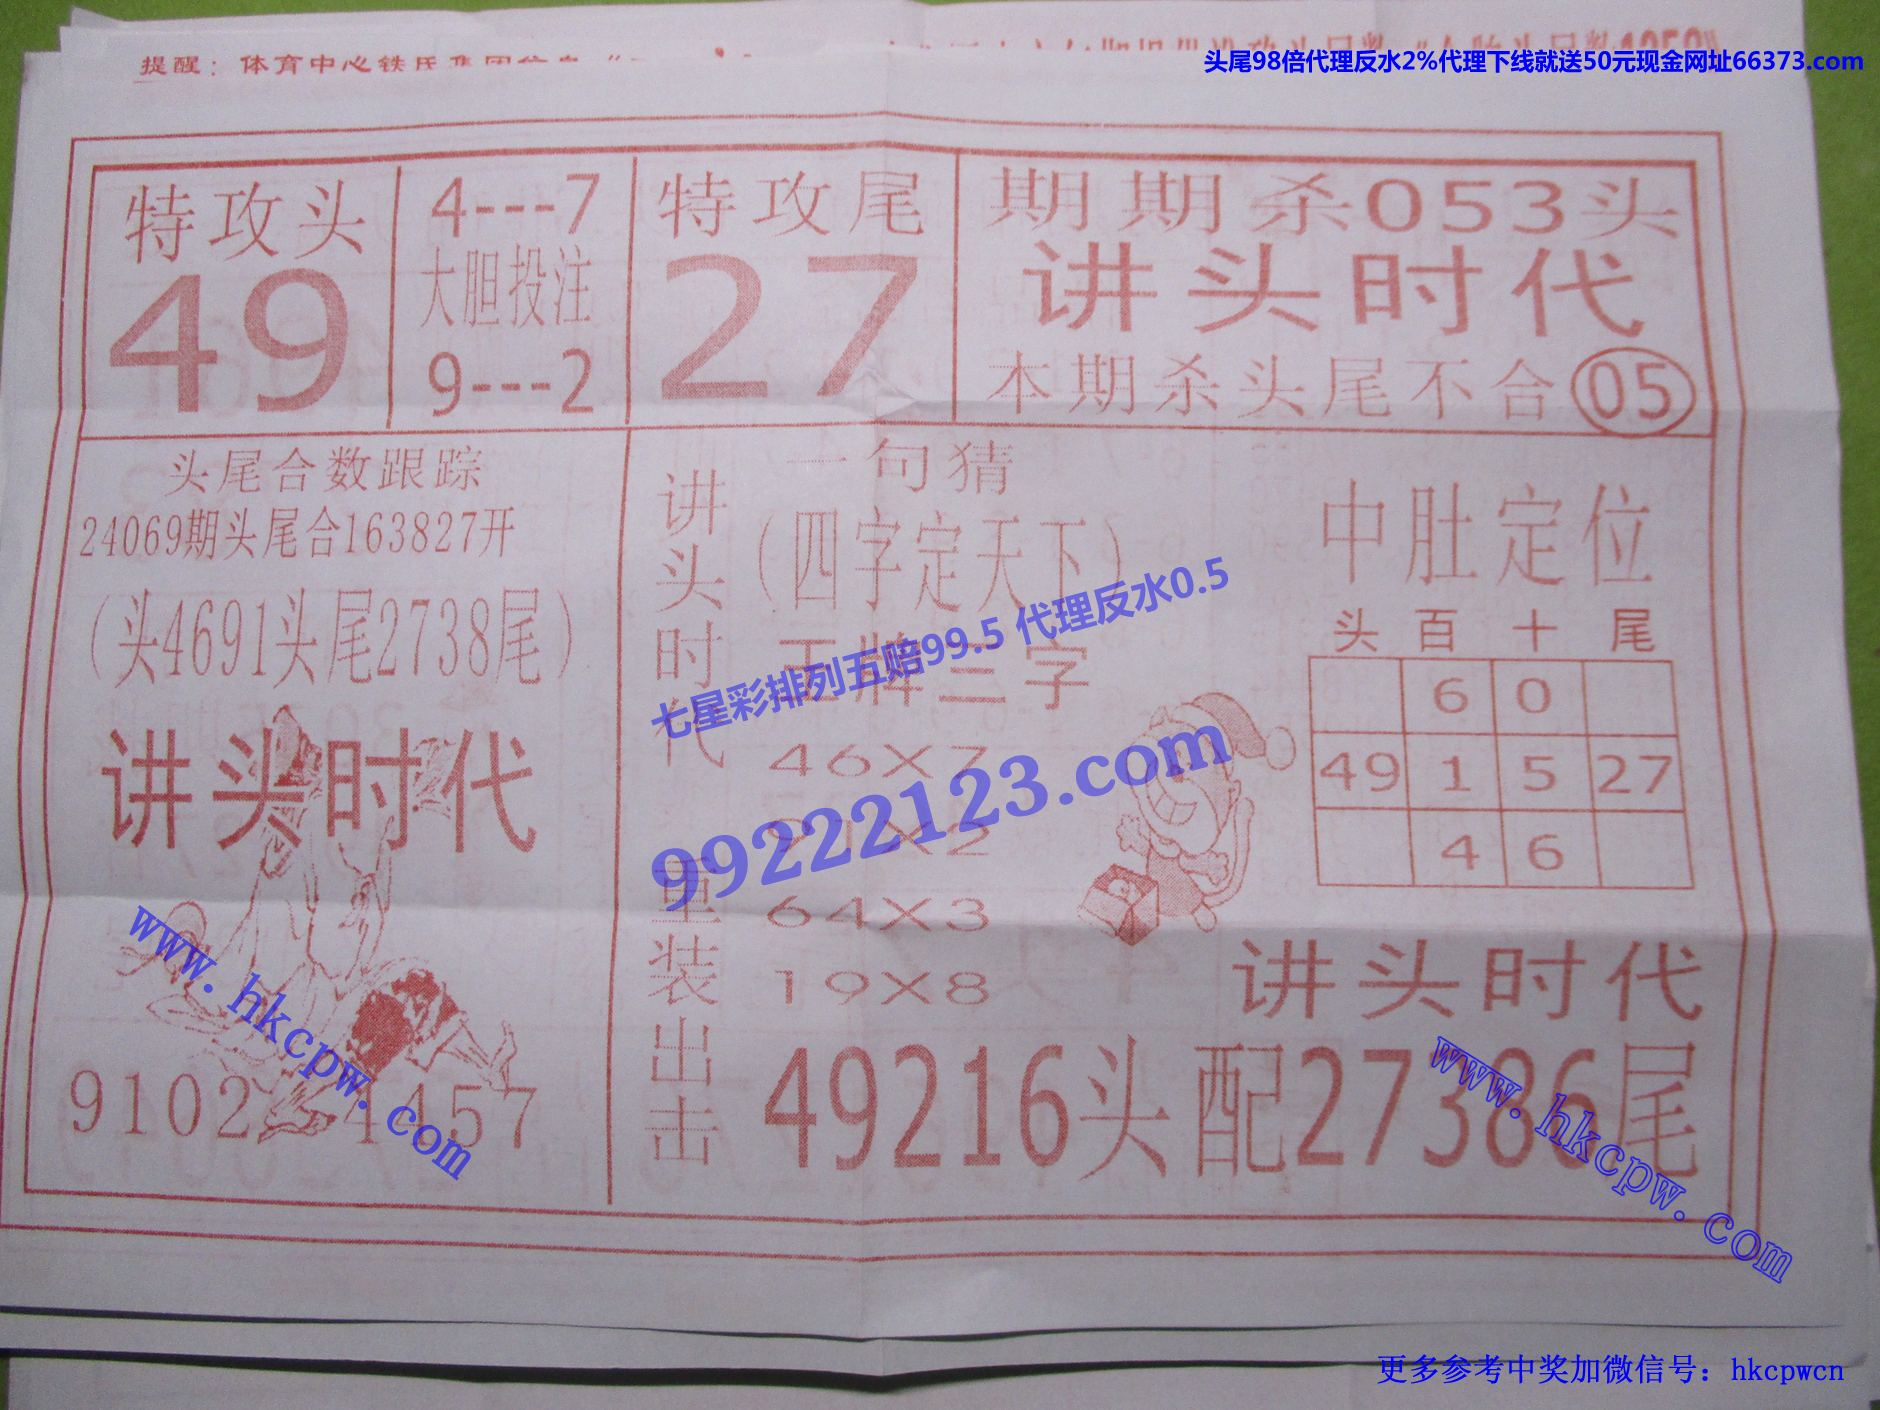 提醒：体育中心铁氏集团
头尾98倍代理反水2%代理下线就送50元现金网址66373.com
特攻头
49
4---7
大胆投注
9---2
特攻尾
27
期期杀053头
讲头时代
本期杀头尾不合05
头尾合数跟踪
24069期头尾合163827开
（头4691头尾2738尾）
讲头时代
9102 4457
讲头时代
重装出击
一句猜
（四字定天下）
王牌三字
46X7
91X2
64X3
19X8
中肚定位
头 百 十 尾
6 0
49 1 5 27
4 6
讲头时代
49216头配27386尾
七星彩排列五赔99.5 代理反水0.5
99222123.com
www.hkcpw.com
www.hkcpw.com
更多参考中奖加微信号：hkcpwcn